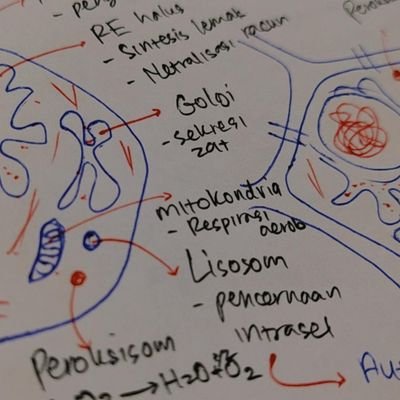 RE halus
- Sintesis lemak
- Netralisasi racun
Golgi
- sekresi
zat
mitokondria
- Respirasi
aerob
Lisosom
- pencernaan
intrasel
Peroksisom
→ H2O + O2